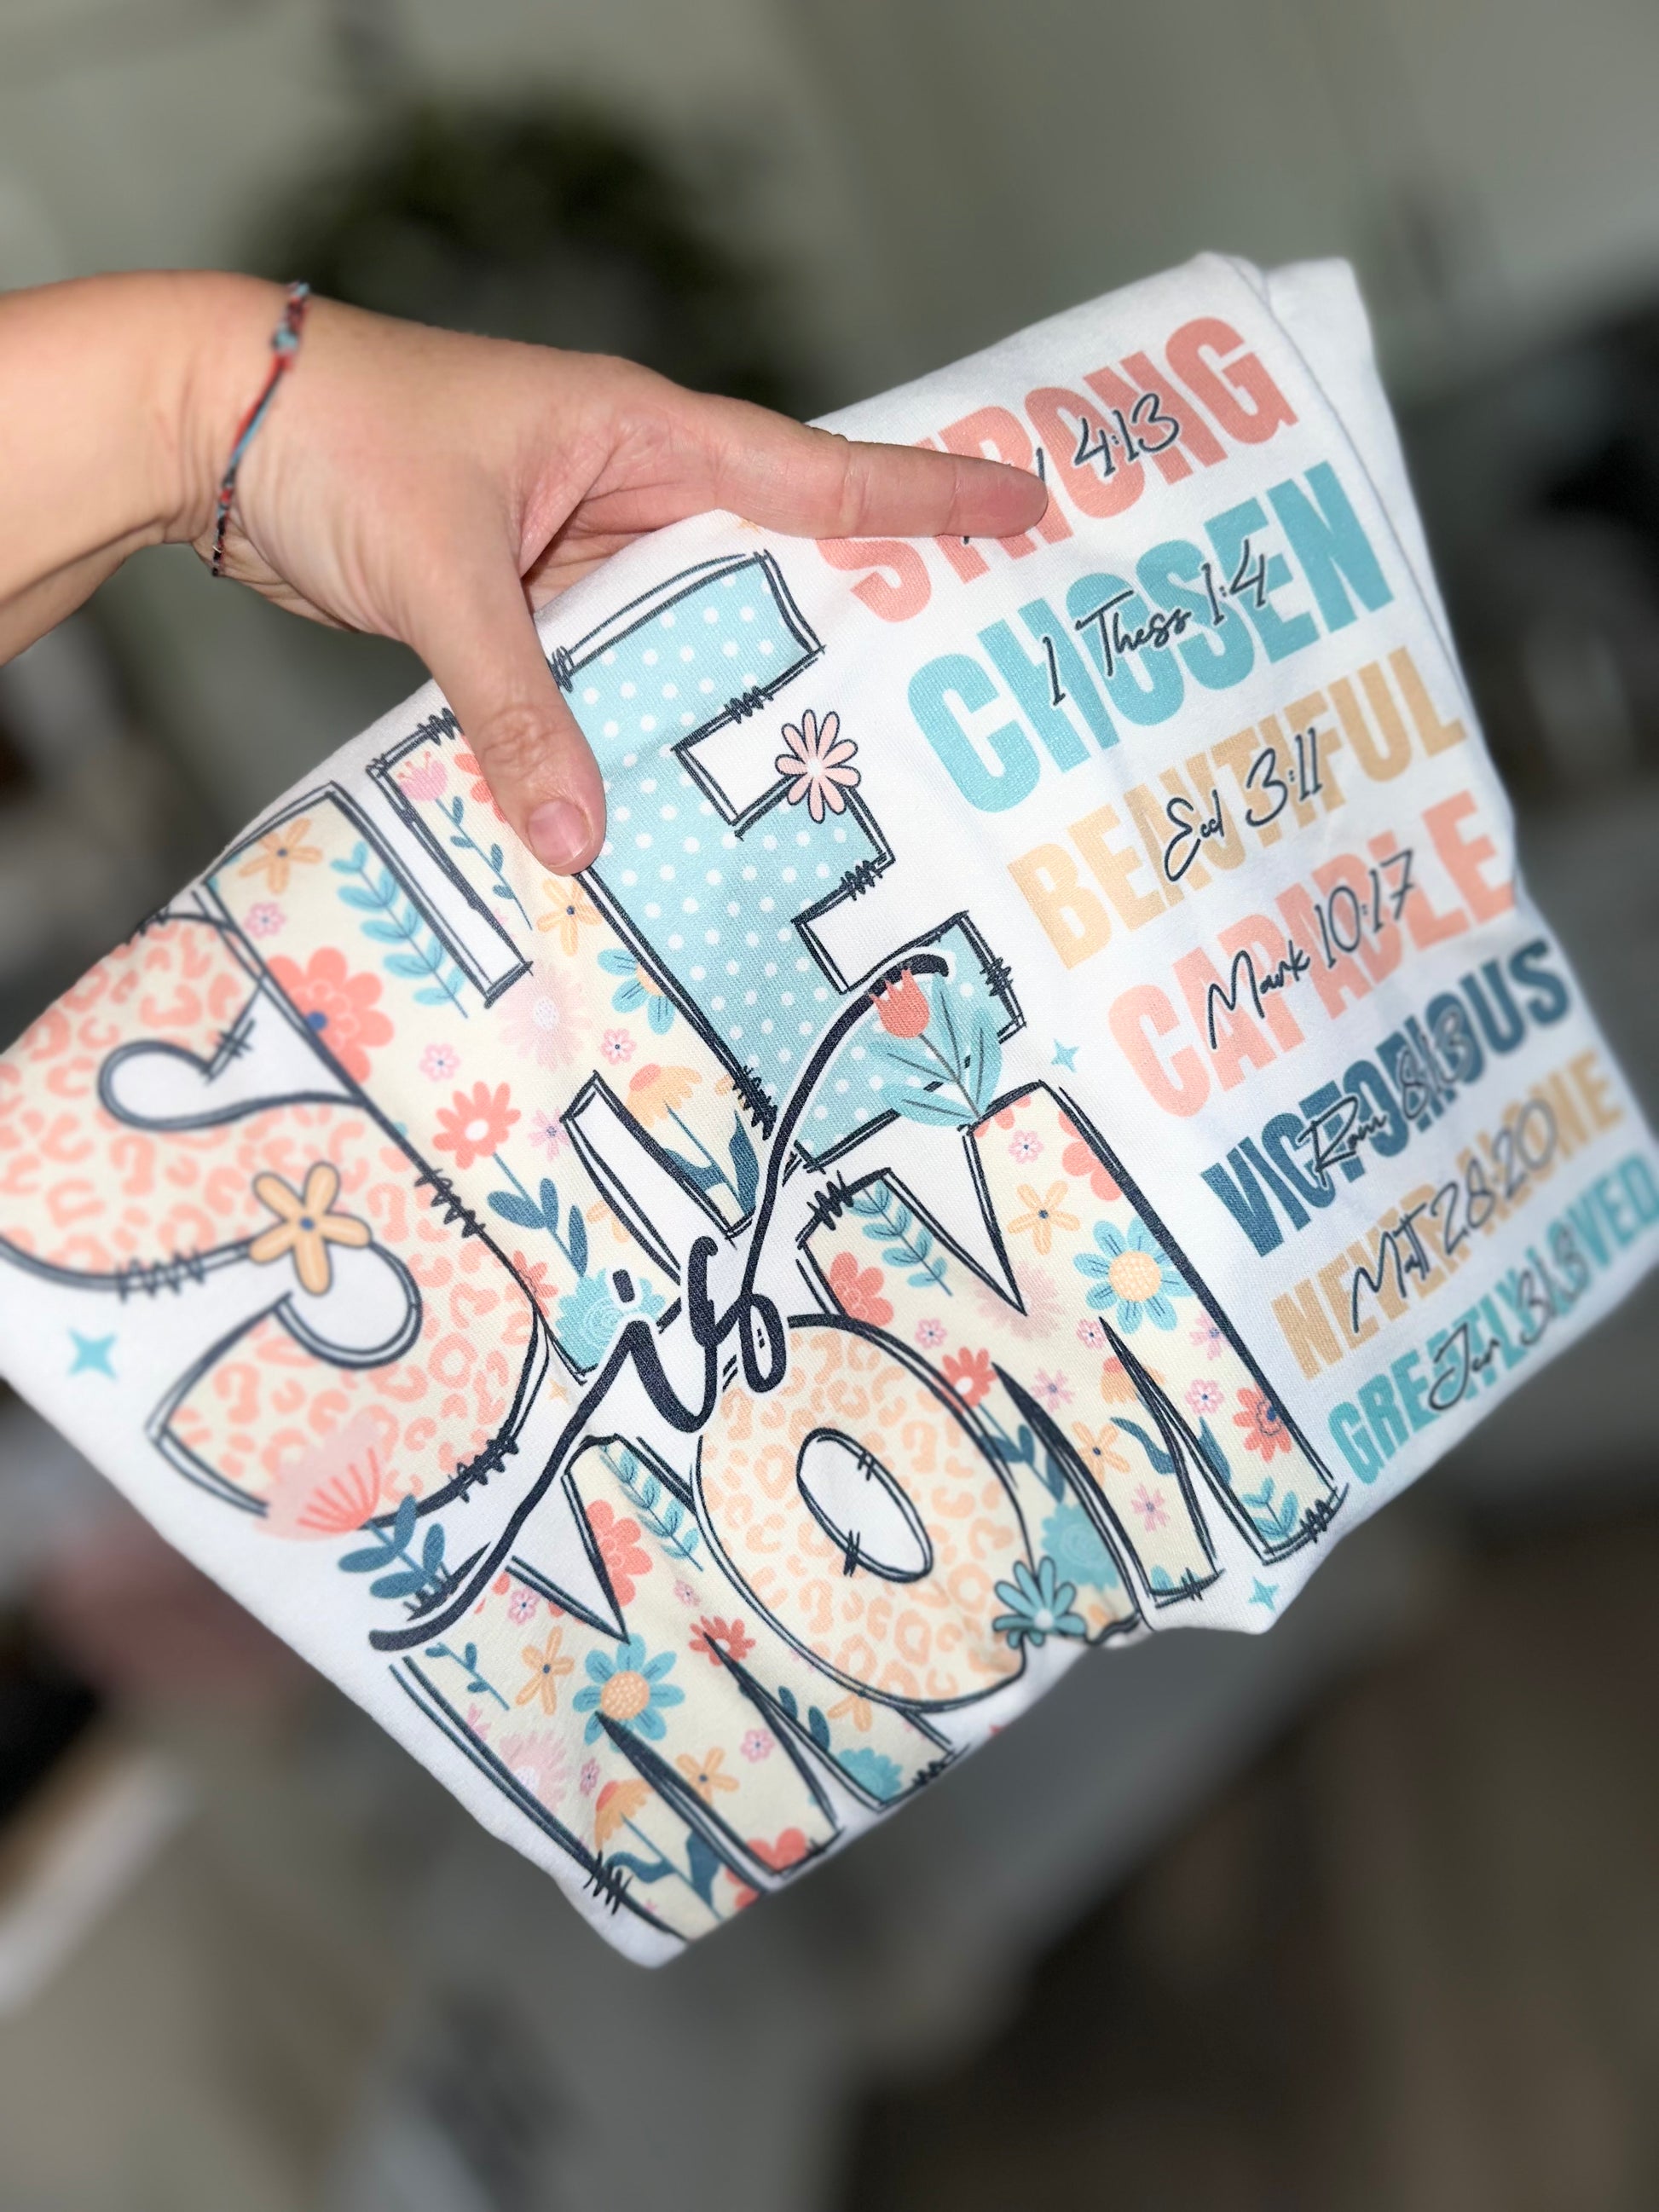 SHE
is
MOM
STRONG
4:13
CHOSEN
1 Thess 1:4
BEAUTIFUL
Eccl 3:11
CAPABLE
Mark 10:17
VICTORIOUS
Rom 8:13
NEVER ALONE
Matt 28:20
GREATLY LOVED
Jer 31:3